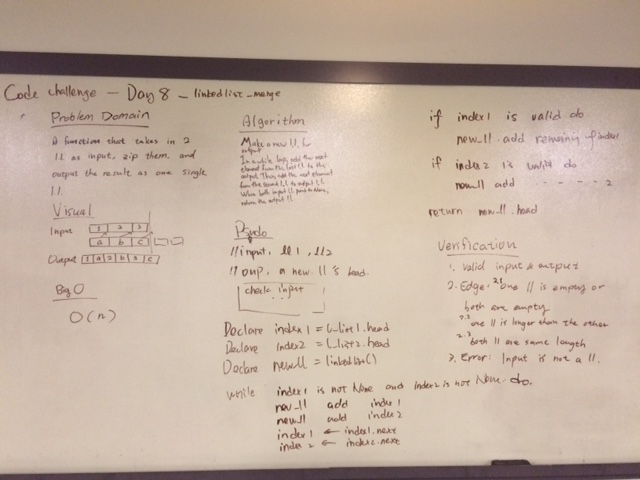 Code challenge - Day 8 - linked list_merge
Problem Domain
A function that takes in 2
ll as input, zip them, and
output the result as one single
ll.
Visual
Input
1 2 3
a b c
Output 1 a 2 b 3 c
Big O
O(n)
Algorithm
Make a new ll,
output
In a while loop, add the next
element from the first ll to the
output. Then add the next element
from the second ll to output ll.
When both input ll point to None,
return the output ll.
Psudo
// input, ll1, ll2
// oup, a new ll's head.
check input
Declare index1 = L_list1.head
Declare index2 = L_list2.head
Declare newll = linkedlist()
while index1 is not None and index2 is not None do.
new_ll add index1
newll add index2
index1 ← index1.next
index2 ← index2.next
if index1 is valid do
new_ll.add remaining of index1
if index2 is valid do
newll add - - - - - - 2
return newll.head
Verification
1. valid input & output
2. Edge: 2.1 one ll is empty or
both are empty
2.2 one ll is longer than the other
2.3 both ll are same length
3. Error: Input is not a ll.